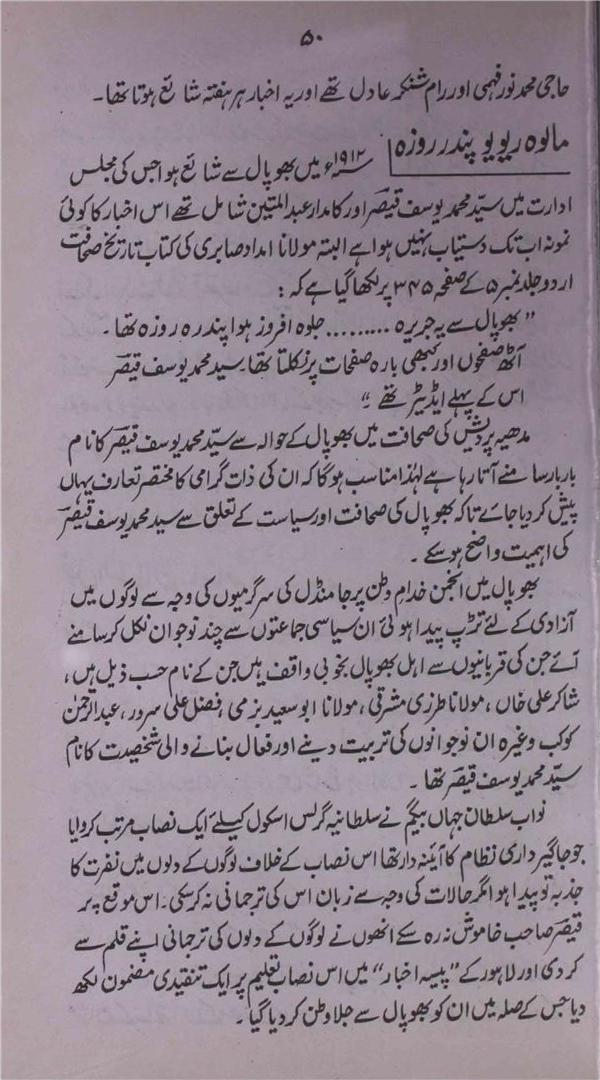 ۵۰
حاجی محمد نور فہمی اور رام شنکر عادل تھے اور یہ اخبار ہر ہفتہ شائع ہوتا تھا۔
مالوہ ریویو پندر روزہ
۱۹۱۲ء میں بھوپال سے شائع ہوا جس کی مجلس
ادارت میں سیّد محمد یوسف قیصؔر اور کامدار عبدالمتین شامل تھے اس اخبار کا کوئی
نمونہ اب تک دستیاب نہیں ہوا ہے البتہ مولانا امداد صابری کی کتاب تاریخ صحافت
اردو جلد نمبر ۵ کے صفحہ ۳۴۵ پر لکھا گیا ہے کہ :
" بھوپال سے یہ جریدہ ......... جلوہ افروز ہوا پندرہ روزہ تھا۔
آٹھ صفحوں اور کبھی بارہ صفحات پر نکلتا تھا۔ سید محمد یوسف قیصؔر
اس کے پہلے ایڈیٹر تھے ۔"
مدھیہ پردیش کی صحافت میں بھوپال کے حوالہ سے سیّد محمد یوسف قیصؔر کا نام
بار بار سامنے آتا رہا ہے لہٰذا مناسب ہوگا کہ ان کی ذات گرامی کا مختصر تعارف یہاں
پیش کر دیا جائے تاکہ بھوپال کی صحافت اور سیاست کے تعلق سے سید محمد یوسف قیصؔر
کی اہمیت واضح ہو سکے ۔
بھوپال میں انجمن خدامِ وطن پرجا منڈل کی سرگرمیوں کی وجہ سے لوگوں میں
آزادی کے لئے تڑپ پیدا ہوئی ان سیاسی جماعتوں سے چند نوجوان نکل کر سامنے
آئے جن کی قربانیوں سے اہل بھوپال بخوبی واقف ہیں جن کے نام حسب ذیل ہیں،
شاکر علی خاں ، مولانا طرزی مشرقی ، مولانا ابو سعید بزمی ، فضل علی سرور ، عبدالرحمٰن
کوکب وغیرہ ان نوجوانوں کی تربیت دینے اور فعال بنانے والی شخصیت کا نام
سیّد محمد یوسف قیصؔر تھا ۔
نواب سلطان جہاں بیگم نے سلطانیہ گرلس اسکول کیلئے ایک نصاب مرتب کروایا
جو جاگیرداری نظام کا آئینہ دار تھا اس نصاب کے خلاف لوگوں کے دلوں میں نفرت کا
جذبہ تو پیدا ہوا مگر حالات کی وجہ سے زبان اس کی ترجمانی نہ کر سکی۔ اس موقع پر
قیصؔر صاحب خاموش نہ رہ سکے انھوں نے لوگوں کے دلوں کی ترجمانی اپنے قلم سے
کردی اور لاہور کے "پیسہ اخبار" میں اس نصاب تعلیم پر ایک تنقیدی مضمون لکھ
دیا جس کے صلہ میں ان کو بھوپال سے جلا وطن کر دیا گیا ۔